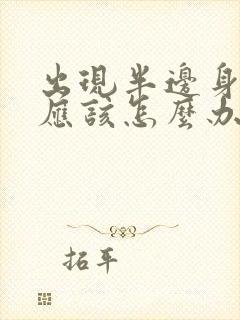 出現半邊身
應該怎麼办
拓平